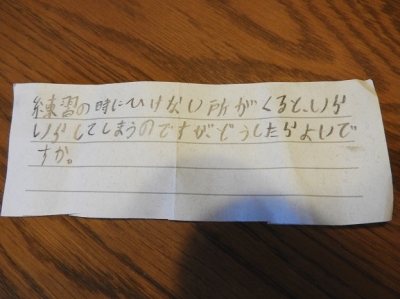 練習の時にひけない所がくると、いら
いらしてしまうのですが、どうしたらよいで
すか。